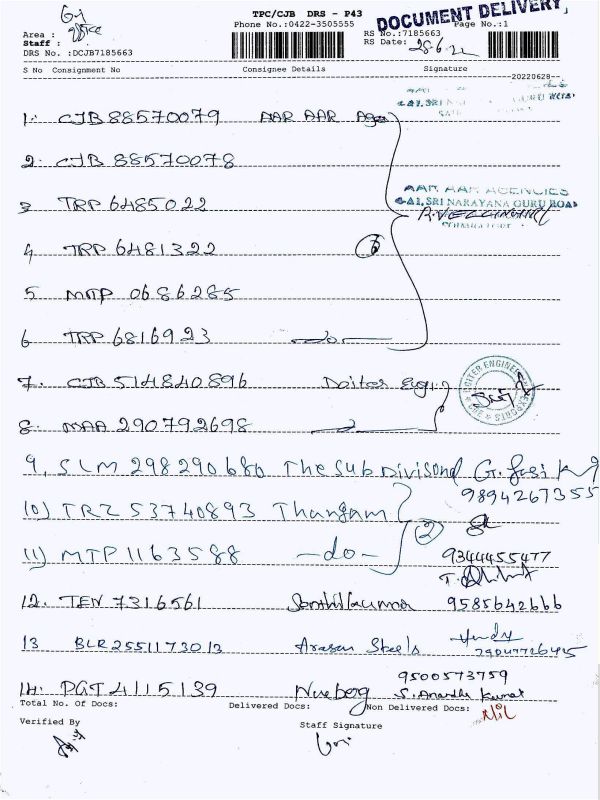 TPC/CJB DRS - P43
DOCUMENT DELIVERY
Phone No.:0422-3505555
Page No.:1
RS No.:7185663
Area : office
Staff :
RS Date: 28.6.22
DRS No. :DCJB7185663
S No Consignment No Consignee Details Signature
20220628
1. CJB 88570079 AAR AAR Age
2. CJB 88570078
3 TRP 6485022
AAR AAR AGENCIES
SRI NARAYANA GURU ROAD
4 TRP 6481322
5 MTP 0686285
6 TRP 6816923 —do—
7. CJB 514840896
8. MAA 290792698
9, SLM 298290680 The Sub Divisonal
9894267355
10) TRZ 53740893 Thangam
2
11) MTP 1163588 —do—
9344455477
12. TEN 7316561 Senthilkumar 9585642666
13 BLR2551173013 Arasan Steels
9500573759
14. PGT 4115139 S. Anandha Kumar
Total No. Of Docs: Delivered Docs: Non Delivered Docs: Nil
Verified By Staff Signature